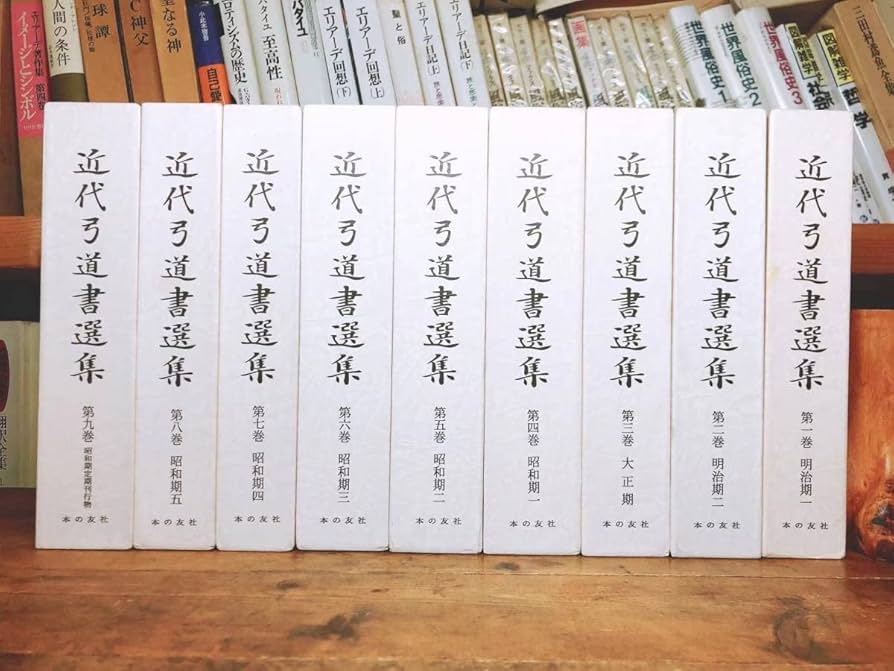 近代弓道書選集
第一巻 明治期一
本の友社
近代弓道書選集
第二巻 明治期二
本の友社
近代弓道書選集
第三巻 大正期
本の友社
近代弓道書選集
第四巻 昭和期一
本の友社
近代弓道書選集
第五巻 昭和期二
本の友社
近代弓道書選集
第六巻 昭和期三
本の友社
近代弓道書選集
第七巻 昭和期四
本の友社
近代弓道書選集
第八巻 昭和期五
本の友社
近代弓道書選集
第九巻 昭和期定期刊行物
本の友社
図解雑学 哲学
図解雑学 社会
世界風俗史3
世界風俗史2
世界風俗史1
画集
エリアーデ日記(下)
エリアーデ日記(上)
聖と俗
エリアーデ回想(上)
エリアーデ回想(下)
バタイユ
バタイユ 至高性
ロティシズムの歴史
聖なる神
C神父
球譚
人間の条件
エリアーデ著作集 第四巻
イメージとシンボル